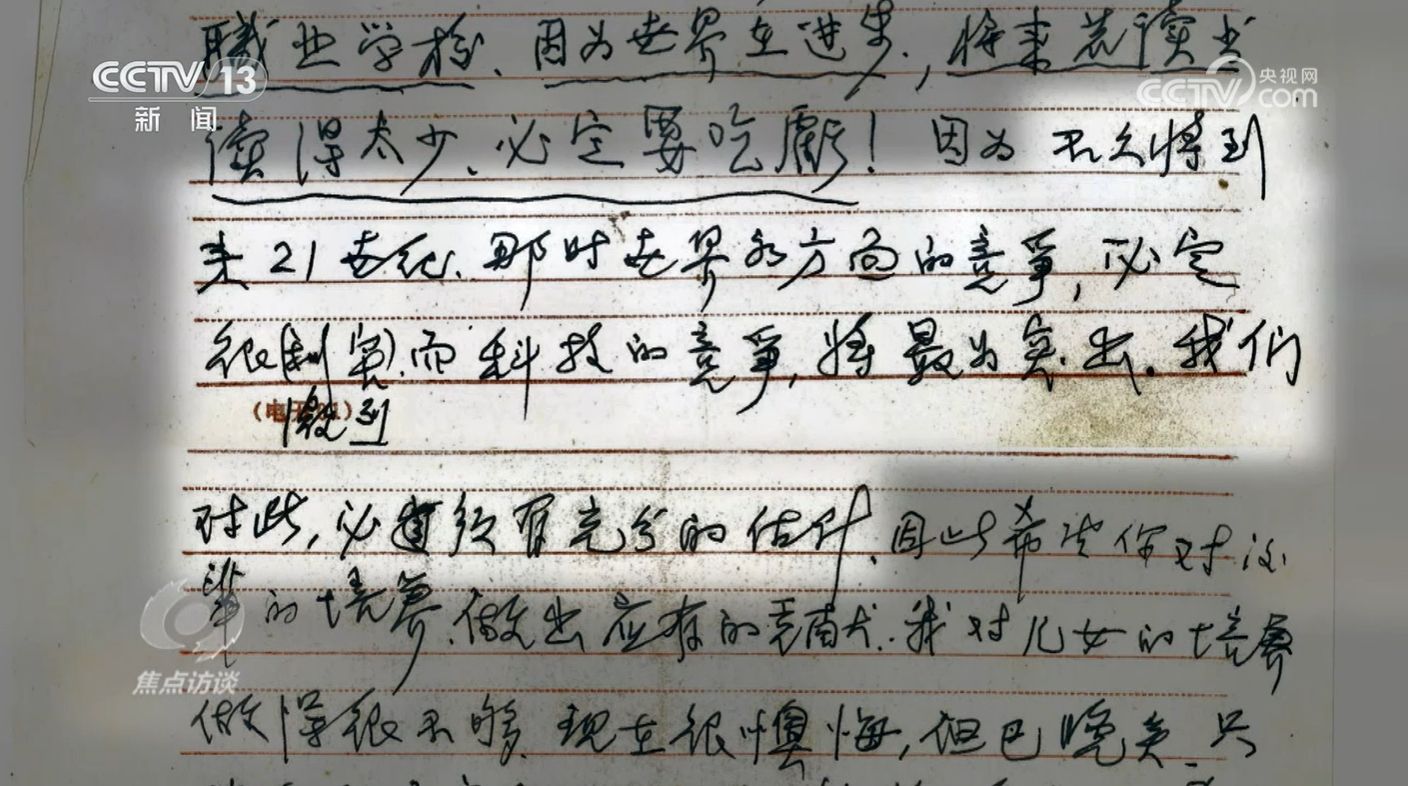 職业学校、因为世界在进步，将来若读书
CCTV 13
新闻
央视网
CCTV.com
读得太少、必定要吃虧！因为不久将到
来21世纪、那时世界各方面的竞争，必定
很(剧)而科技的竞争，将最为突出。我们
激烈
对此，必须有充分的估计、因此希望你对后
辈的培养、做出应有的贡献、我对儿女的培养
焦点访谈
做得很不够、现在很懊悔，但已晚矣、只